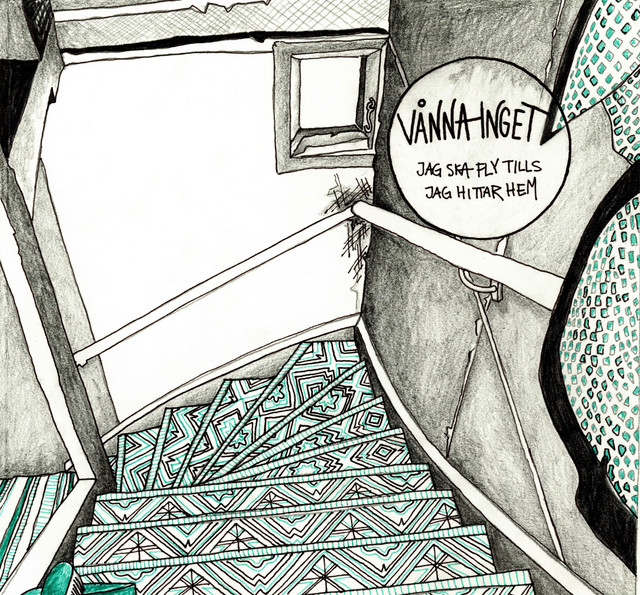 VÅNNA INGET
JAG SKA FLY TILLS
JAG HITTAR HEM